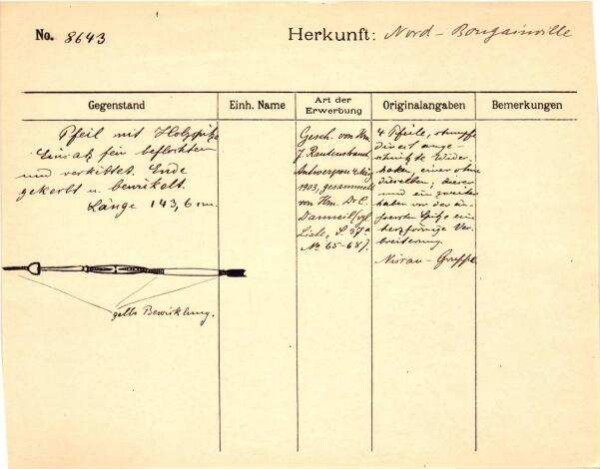 No. 8643
Herkunft: Nord-Bougainville
Gegenstand
Einh. Name
Art der
Erwerbung
Originalangaben
Bemerkungen
Pfeil mit Holzspitze
Einsatz fein beflochten
und verkittet. Ende
gekerbt u. bewickelt.
Länge 143,6 cm.
gelbe Bewicklung.
Gesch. von Hrn.
J.
Antwerpen
1903, gesammelt
von Hrn. Dr.
(vgl.
Liste, S. 37a
No 65-68).
4 Pfeile, stumpfe
Wider-
haken, einer ohne
dieselben; dieser
und ein zweiter
haben vor der
Spitze eine
herzförmige Ver-
breiterung.
Gruppe